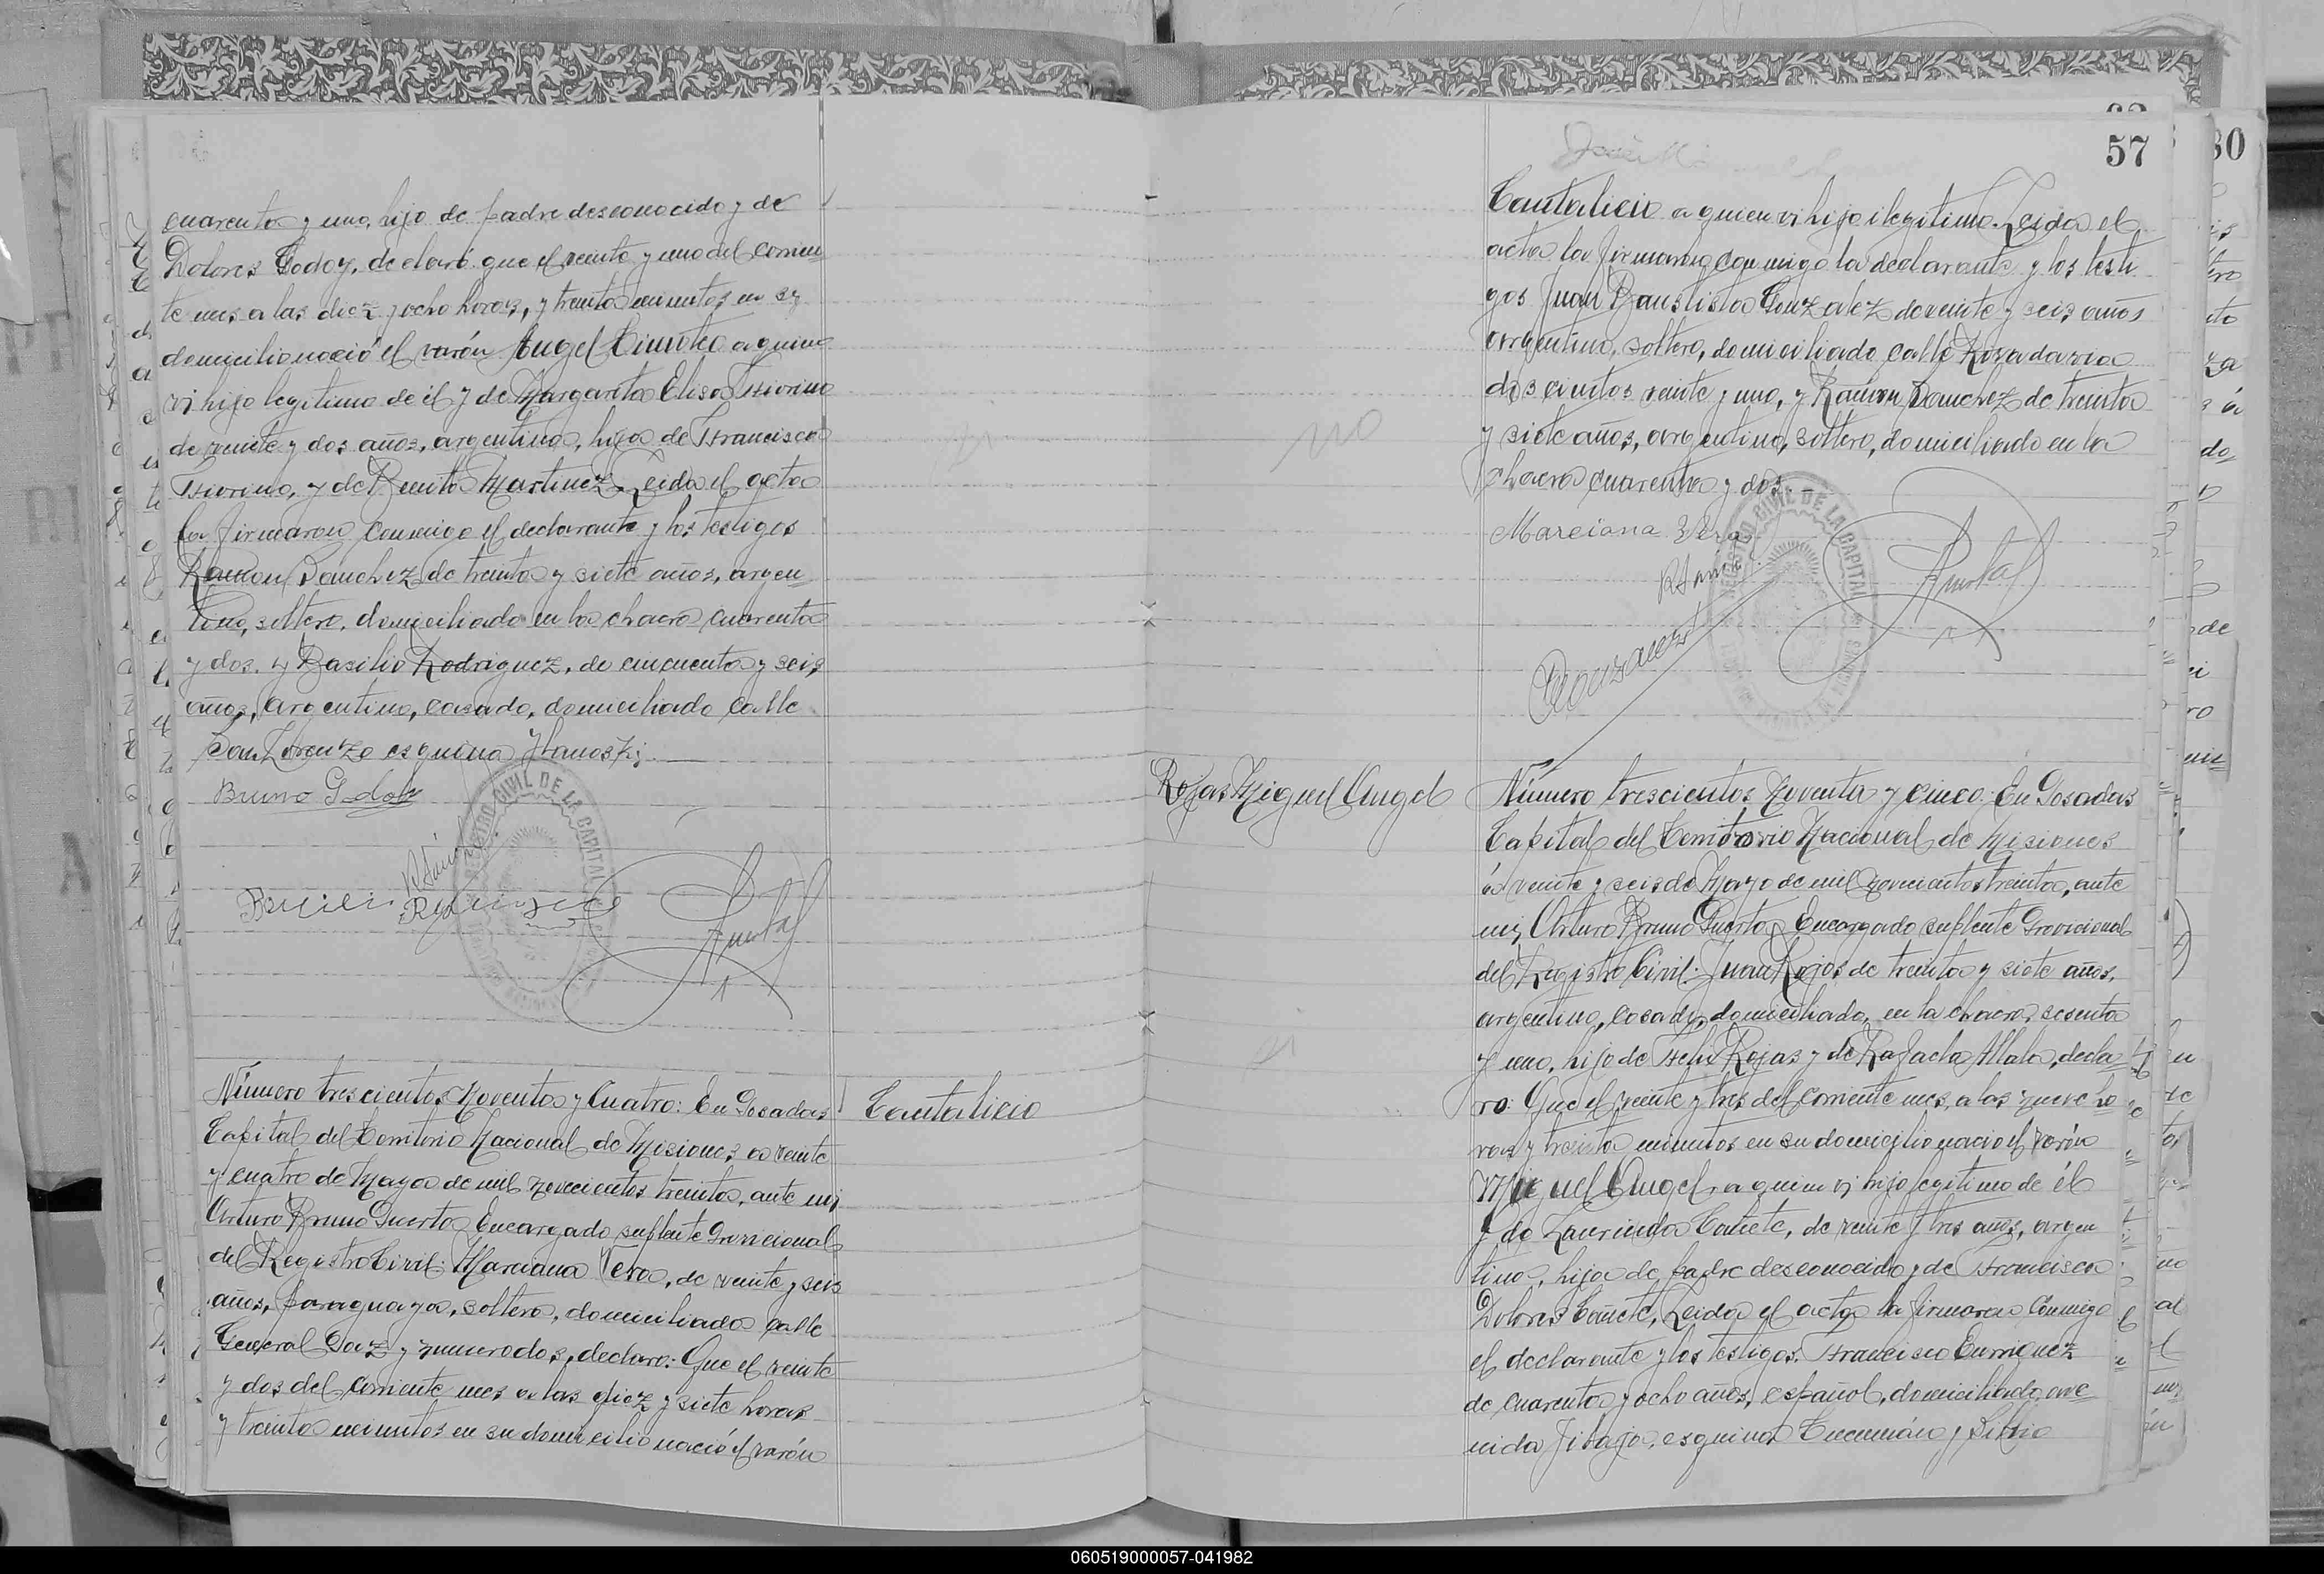 cuarenta y uno, hijo de padre desconocido y de
Dolores Godoy, declaró que el veinte y uno del corrien
te mes a las diez y ocho horas, y treinta minutos en su
domicilio nació el varón Angel Timoteo a quien
vi hijo legitimo de él y de Margarita Elisa Fiorino
de veinte y dos años, argentina, hija de Francisco
Fiorino, y de Benita Martinez. Leida el acta
la firmaron conmigo el declarante y los testigos
Ramon Sanchez de treinta y siete años, argen
tino, soltero, domiciliado en la chacra cuarenta
y dos. y Basilio Rodriguez, de cincuenta y seis
años, argentino, casado, domiciliado calle
San Lorenzo esquina
Bruno Godoy
REGISTRO CIVIL DE LA CAPITAL
Número trescientos Noventa y Cuatro: En Posadas
Capital del Territorio Nacional de Misiones a veinte
y cuatro de Mayo de mil novecientos treinta, ante mi
Arturo Bruno Puerta Encargado suplente Provicional
del Registro Civil: Marciana Vera, de veinte y seis
años, paraguaya, soltera, domiciliada calle
General Paz y numero dos, declaro: Que el veinte
y dos del corriente mes a las diez y siete horas
y treinta minutos en su domicilio nació el varón
Cantalicio
57
Cantalicio a quien vi hijo ilegitimo. Leida el
acta la firmaron conmigo la declarante y los testi
gos Juan Baustista Gonzalez de veinte y seis años
argentino, soltero, domiciliado calle Rivadavia
doscientos veinte y uno, y Ramon Sanchez de treinta
y siete años, argentino, soltero, domiciliado en la
chacra cuarenta y dos.
no
Marciana Vera
REGISTRO CIVIL DE LA CAPITAL
Rojas Miguel Angel
Número trescientos Noventa y Cinco: En Posadas
Capital del Territorio Nacional de Misiones
a veinte y seis de Mayo de mil novecientos treinta, ante
mi, Arturo Bruno Puerta Encargado suplente Provicional
del Registro Civil: Juan Rojas de treinta y siete años,
argentino, casado, domiciliado, en la chacra sesenta
y uno, hijo de Rojas y de Rafaela decla
ro: Que el veinte y tres del corriente mes, a las nueve ho
ras y treinta minutos en su domicilio nacio el varón
Miguel Angel, a quien vi hijo legitimo de él
y de Laurinda Cañete, de veinte y tres años, argen
tina, hija de padre desconocido y de Francisca
Dolores Cañete, Leida el acta la firmaron conmigo
el declarante y los testigos. Francisco Enrriquez
de cuarenta y ocho años, español, domiciliado ave
nida esquina Tucumán y Silvio
060519000057-041982